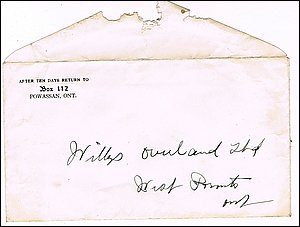 AFTER TEN DAYS RETURN TO
Box 112
POWASSAN, ONT.
Willys Overland Ltd
West Toronto
Ont